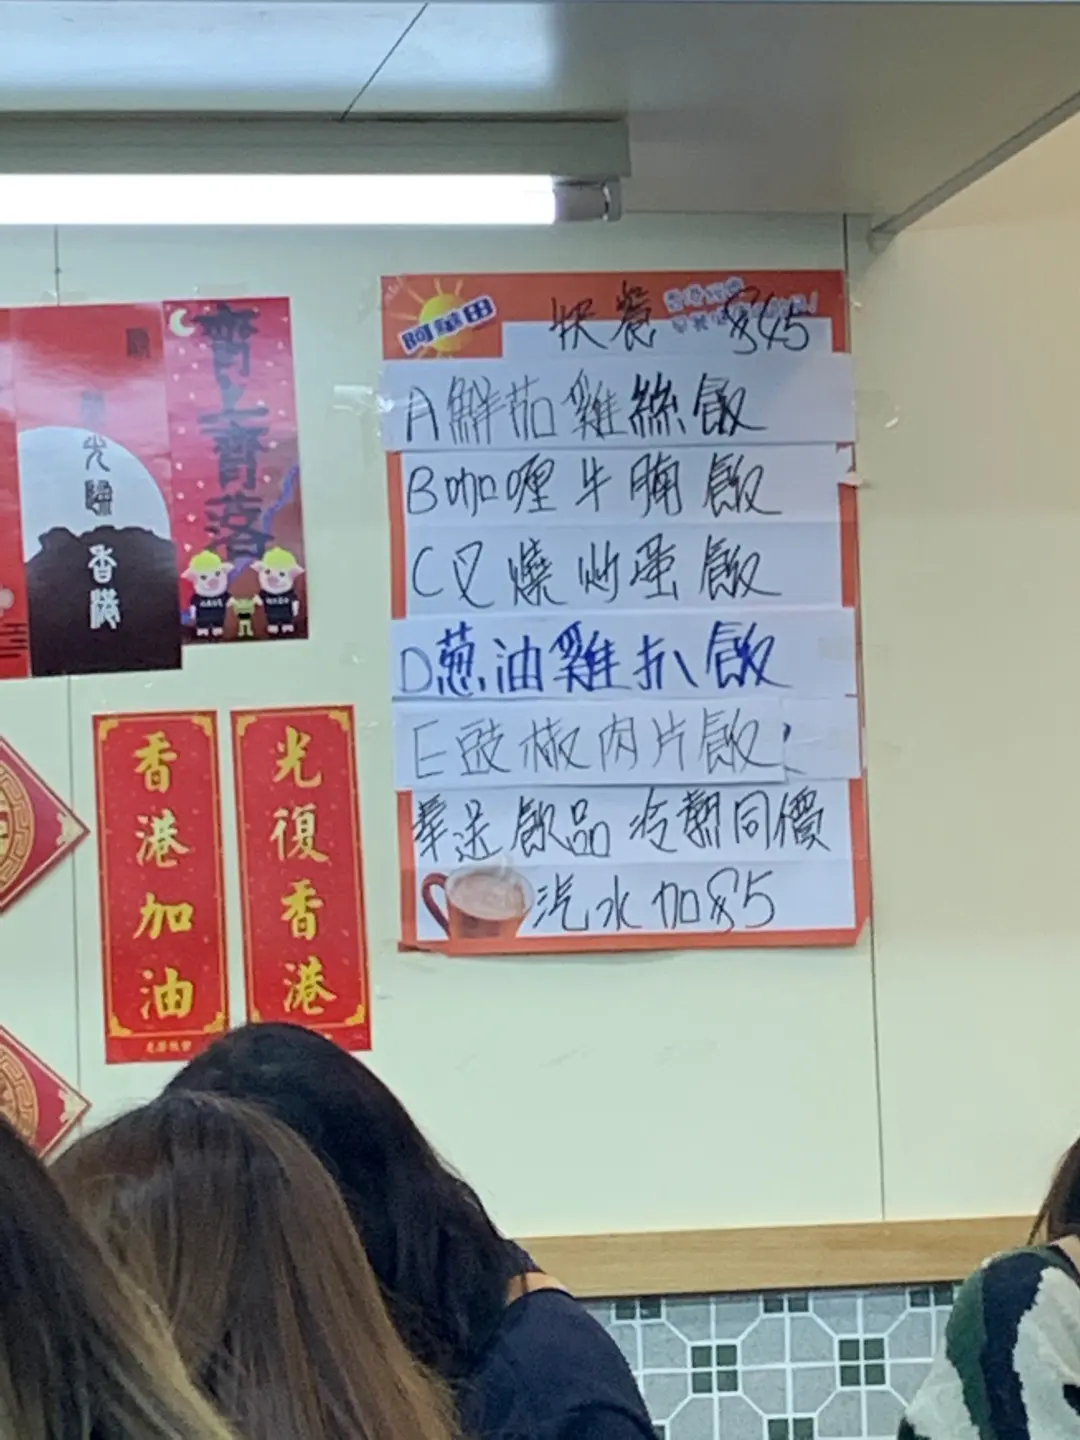 齊上齊落
光歸
香港
香港加油
光復香港
阿華田
快餐 $45
A鮮茄雞絲飯
B咖喱牛腩飯
C叉燒炒蛋飯
D蔥油雞扒飯
E豉椒肉片飯
奉送飲品 冷熱同價
汽水加$5